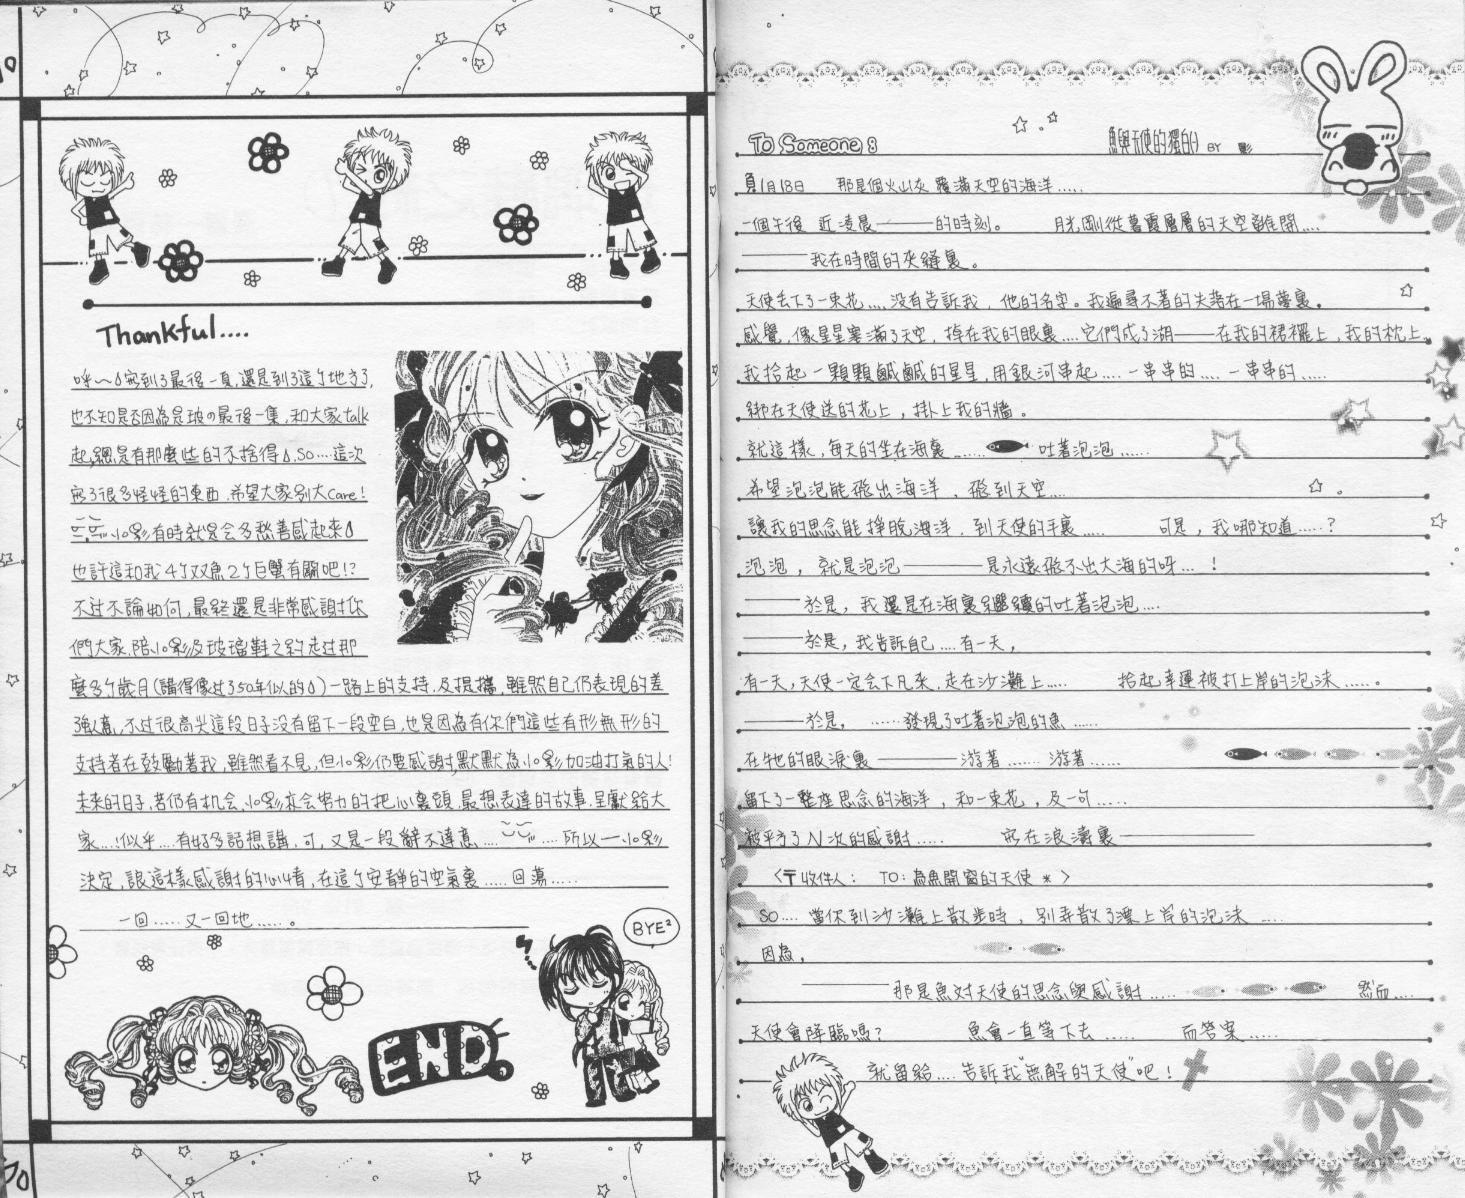 Thankful....
呼~~△寫到了最後一頁,還是到了這个地方了,
也不知是否因為是玻の最後一集,和大家talk
起,總是有那麼些的不捨得△.SO....這次
寫了很多怪怪的東西,希望大家別太care!
小影有時就是會多愁善感起來△
也許這和我4个双魚2个巨蟹有關吧!?
不过不論如何,最終還是非常感謝你
們大家,陪小影及玻璃鞋之約走过那
麼多个歲月(講得像过了50年似的△)一路上的支持,及提攜,雖然自己仍表現的差
強人意,不过很高兴這段日子沒有留下一段空白,也是因為有你們這些有形無形的
支持者在鼓勵著我,雖然看不見,但小影仍要感謝,默默為小影加油打氣的人!
未來的日子,若仍有机会,小影亦会努力的把心裏頭,最想表達的故事,呈獻給大
家...!似乎....有好多話想講,可,又是一段辭不達意.... ....所以──小影
決定,讓這樣感謝的心情,在這个安靜的空氣裏.....回蕩.....
一回.....又一回地.....。
BYE²
END.
To Someone:
魚與天使的獨白() BY 影
負1月18日 那是個火山灰覆滿天空的海洋.....
一個午後 近凌晨───的時刻。 月光,剛從暮靄層層的天空離開....
───我在時間的夾縫裏。
天使丟下了一束花....沒有告訴我,他的名字。我遍尋不著的失落在一場夢裏。
感覺,像星星塞滿了天空,掉在我的眼裏....它們成了湖──在我的裙襬上,我的枕上。
我拾起一顆顆鹹鹹的星星,用銀河串起.....一串串的.....一串串的......
綁在天使送的花上,掛上我的牆。
就這樣,每天的坐在海裏...... 吐著泡泡......
希望泡泡能飛出海洋,飛到天空....
讓我的思念能掙脫海洋,到天使的手裏..... 可是,我哪知道.....?
泡泡,就是泡泡────是永遠飛不出大海的呀...!
───於是,我還是在海裏繼續的吐著泡泡....
───於是,我告訴自己....有一天,
有一天,天使一定会下凡來,走在沙灘上..... 拾起幸運被打上岸的泡沫......。
───於是, ......發現了吐著泡泡的魚......
在牠的眼淚裏────游著.......游著......
留下了一整座思念的海洋,和一束花,及一句.....
被平方了N次的感謝..... 寫在浪濤裏──────
〈〒收件人: TO:為魚開窗的天使 *〉
SO....當你到沙灘上散步時,別弄散了漂上岸的泡沫.....
因為,
────那是魚对天使的思念與感謝..... 然而....
天使會降臨嗎? 魚會一直等下去...... 而答案.....
就留給....告訴我"無解的天使"吧!